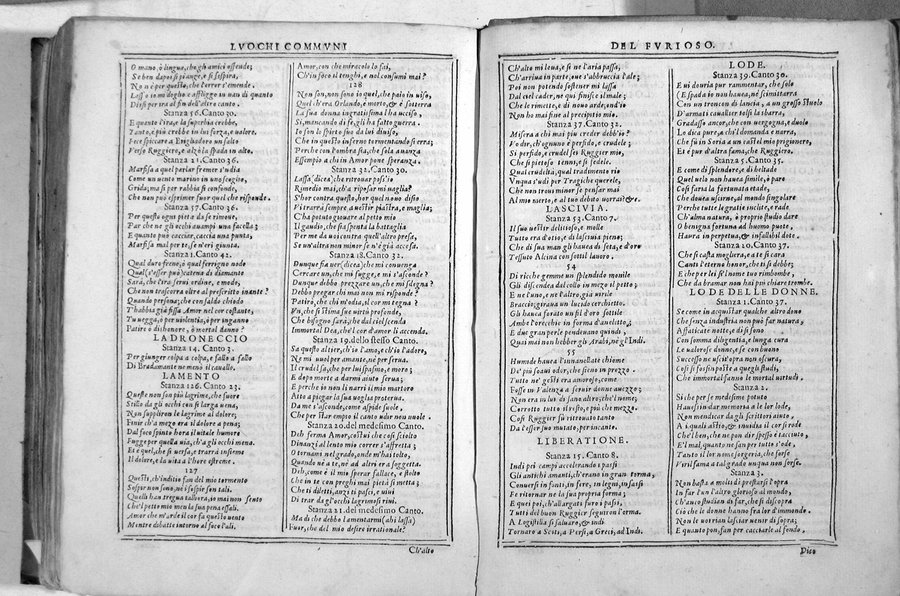 LVOCHI COMMVNI
O mano, ò lingua, che gli amici offende;
Se ben dapoi si piange, e si sospira,
No n'è per questo, che l'error s'emende.
Lasso io mi doglio e affliggo in uan di quanto
Dissi per ira al fin dell'altro canto.
Stanza 56. Canto 30.
E quanto l'ira, e la superbia crebbe,
Tanto, e più crebbe in lui forza, e ualore.
Fece spiccare a Brigliadoro un salto
Verso Ruggiero, e alzò la spada in alto.
Stanza 21. Canto 36.
Marfisa a quel parlar fremer s'udia
Come un uento marino in uno scoglio,
Grida; ma sì per rabbia si confonde,
Che non può esprimer fuor quel che risponde.
Stanza 57. Canto 36.
Per questo ogni pietà da se rimoue,
Par che ne gli occhi auampi una facella;
E quanto può cacciar, caccia una punta,
Marfisa mal per te, se n'eri giunta.
Stanza 1. Canto 42.
Qual duro freno, ò qual ferrigno nodo
Qual (s'esser può) catena di diamante
Sarà, che l'ira serui ordine, e modo;
Che non trascorra oltre al prescritto inante?
Quando persona; che con saldo chiodo
T'habbia già fissa Amor nel cor costante,
Tu uegga, ò per uiolentia, ò per inganno
Patire ò dishonore, ò mortal danno?
LADRONECCIO
Stanza 14. Canto 3.
Per giunger colpa a colpa, e fallo a fallo
Di Bradamante ne menò il cauallo.
LAMENTO
Stanza 126. Canto 23.
Queste non son più lagrime, che fuore
Stillo da gli occhi con sì larga uena,
Non suppliron le lagrime al dolore;
Finir ch'a mezo era il dolore a pena;
Dal foco spinto hora il uitale humore
Fugge per quella uia, ch'a gli occhi mena.
Et è quel, che si uersa, e trarrà insieme
Il dolore, e la uita a l'hore estreme.
127
Questi, ch'inditio fan del mio tormento
Sospir non sono, nè i sospir son tali.
Quelli han tregua talhora, io mai non sento
Che'l petto mio men la sua pena essali.
Amor che m'arde il cor fa questo uento
Mentre dibatte intorno al foco l'ali.
Amor, con che miracolo lo fai,
Ch'in foco il tenghi, e nol consumi mai?
128
Non son, non sono io quel, che paio in uiso,
Quel ch'era Orlando, è morto, & è sotterra
La sua donna ingratissima l'ha ucciso,
Sì, mancando di fe, gli ha fatto guerra.
Io son lo spirto suo da lui diuiso,
Che in questo inferno tormentando si erra;
Perche con l'ombra sia, che sola auanza
Essempio a chi in Amor pone speranza.
Stanza 31. Canto 30.
Lassa, dicea; che ritrouar poss'io
Rimedio mai, ch'a riposar mi uaglia?
S'hor contra questo, hor quel nouo disio
Vi trarrà sempre a uestir piastra, e maglia;
C'ha potuto giouare al petto mio
Il gaudio, che sia spenta la battaglia
Per me da uoi contra quell'altro presa,
Se un'altra non minor se n'è già accesa.
Stanza 18. Canto 32.
Dunque fia uer (dicea) che mi conuenga
Cercare un, che mi fugge, e mi s'asconde?
Dunque debbo prezzare un, che mi sdegna?
Debbo pregar chi mai non mi risponde?
Patirò, che chi m'odia, il cor mi tegna?
Vn, che sì stima sue uirtù profonde,
Che bisogno sarà, che dal ciel scenda
Immortal Dea, che'l cor d'amor li accenda.
Stanza 19. dello stesso Canto.
Sa questo altier, ch'io l'amo, e ch'io l'adoro,
Nè mi uuol per amante, nè per serua.
Il crudel sa, che per lui spasmo, e moro;
E dopo morte a darmi aiuto serua;
E perche io non li narri il mio martoro
Atto a piegar la sua uoglia proterua.
Da me s'asconde, come aspide suole,
Che per star empio il canto udir non uuole.
Stanza 20. del medesimo Canto.
Deh ferma Amor, costui che così sciolto
Dinanzi al lento mio correr s'affretta;
O tornami nel grado, onde m'hai tolto,
Quando nè a te, nè ad altri era soggetta.
Deh, come è il mio sperar fallace, e stolto
Che in te con preghi mai pietà si metta;
Che ti diletti, anzi ti pasci, e uiui
Di trar da gl'occhi lagrimosi riui.
Stanza 21. del medesimo Canto.
Ma di che debbo lamentarmi (ahi lassa)
Fuor, che del mio desire irrationale?
Ch'alto
DEL FVRIOSO.
Ch'alto mi leua, e sì ne l'aria passa,
Ch'arriua in parte, oue s'abbruccia l'ale;
Poi non potendo sostener mi lassa
Dal ciel cader, nè qui finisce il male;
Che le rimette, e di nouo arde, ond'io
Non ho mai fine al precipitio mio.
Stanza 37. Canto 32.
Misera a chi mai più creder debb'io?
Vo dir, ch'ognuno è perfido, e crudele;
Si perfido, e crudel sei Ruggier mio,
Che sì pietoso tenni, e sì fedele.
Qual crudeltà, qual tradimento rio
Vnqua s'udì per Tragiche querele,
Che non troui minor se pensar mai
Al mio merto, e al tuo debito uorrai?
LASCIVIA.
Stanza 53. Canto 7.
Il suo uestir delitioso, e molle
Tutto era d'otio, e di lasciuia pieno;
Che di sua man gli hauea di seta, e d'oro
Tessuto Alcina con sottil lauoro.
54
Di ricche gemme un splendido monile
Gli discendea dal collo in mezo il petto;
E ne l'uno, e ne l'altro, già uirile
Braccio; giraua un lucido cerchietto.
Gli hauea forato un fil d'oro sottile
Ambe l'orecchie in forma d'anelletto;
E due gran perle pendeuano quindi,
Quai mai non hebber gli Arabi, nè gl'Indi.
55
Humide hauea l'innanellate chiome
De' più soaui odor, che sieno in prezzo.
Tutto ne' gesti era amoroso, come
Fosse in Valenza a seruir donne auezzo;
Non era in lui di sano altro; che'l nome;
Corrotto tutto il resto, e più che mezzo.
Così Ruggier fù ritrouato tanto
Da l'esser suo mutato, per incanto.
LIBERATIONE.
Stanza 15. Canto 8.
Indi pei campi accelerando i passi
Gli antichi amanti, ch'erano in gran torma,
Conuersi in fonti, in fere, in legni, in sassi
Fe ritornar ne la sua propria forma;
E quei poi, ch'allargati furo i passi,
Tutti del buon Ruggier seguiron l'orma.
A Logistilla si saluaro, & indi
Tornaro a Sciti, a Persi, a Greci, ad Indi.
LODE.
Stanza 39. Canto 30.
E ui douria pur rammentar, che solo
E spada io non hauea, nè scimittarra
Con un troncon di lancia, a un grosso stuolo
D'armati caualier tolsi la sbarra,
Gradasso ancor, che con uergogna, e duolo
Lo dica pure, a chi'l domanda e narra,
Che fù in Soria a un castel mio prigioniero,
Et è pur d'altra fama, che Ruggiero.
Stanza 5. Canto 35.
E come di splendore, e di beltade
Quel uelo non hauea simile, ò pare
Così saria la fortunata etade,
Che douea uscirne, al mondo singulare
Perche tutte le gratie inclite, e rade
Ch'alma natura, ò proprio studio dare
O benigna fortuna ad huomo puote,
Haurà in perpetua, & infallibil dote.
Stanza 20. Canto 37.
Che sì casta mogliera, e a te sì cara
Canti l'eterno honor, che ti si debbe;
E che per lei sì nome tuo rimbombe,
Che da bramar non hai più chiare trombe.
LODE DELLE DONNE.
Stanza 1. Canto 37.
Se come in acquistar qualche altro dono
Che senza industria non può far natura,
Affaticate notte, e dì sono
Con somma diligentia, e lunga cura
Le ualorose donne, e se con buono
Successo ne uscì opra non oscura,
Così si fosin poste a quegli studi,
Che immortal fanno le mortal uirtudi.
Stanza 2.
Si che per se medesime potuto
Hauessin dar memoria a le lor lode,
Non mendicar da gli scrittori aiuto,
A i quali astio, & inuidia il cor sì rode
Che'l ben, che ne pon dir spesso è tacciuto,
E'l mal, quanto ne san per tutt' s'ode,
Tanto il lor nome sorgeria, che forse
Viril fama a tal grado unqua non sorse.
Stanza 3.
Non basta a molti di prestarsi l'opra
In far l'un l'altro glorioso al mondo;
Ch'anco studian di far, che si discopra
Ciò che le donne hanno fra lor d'immondo.
Non le uorrian lasciar uenir di sopra;
E quanto pon, fan per cacciarle al fondo.
Dico